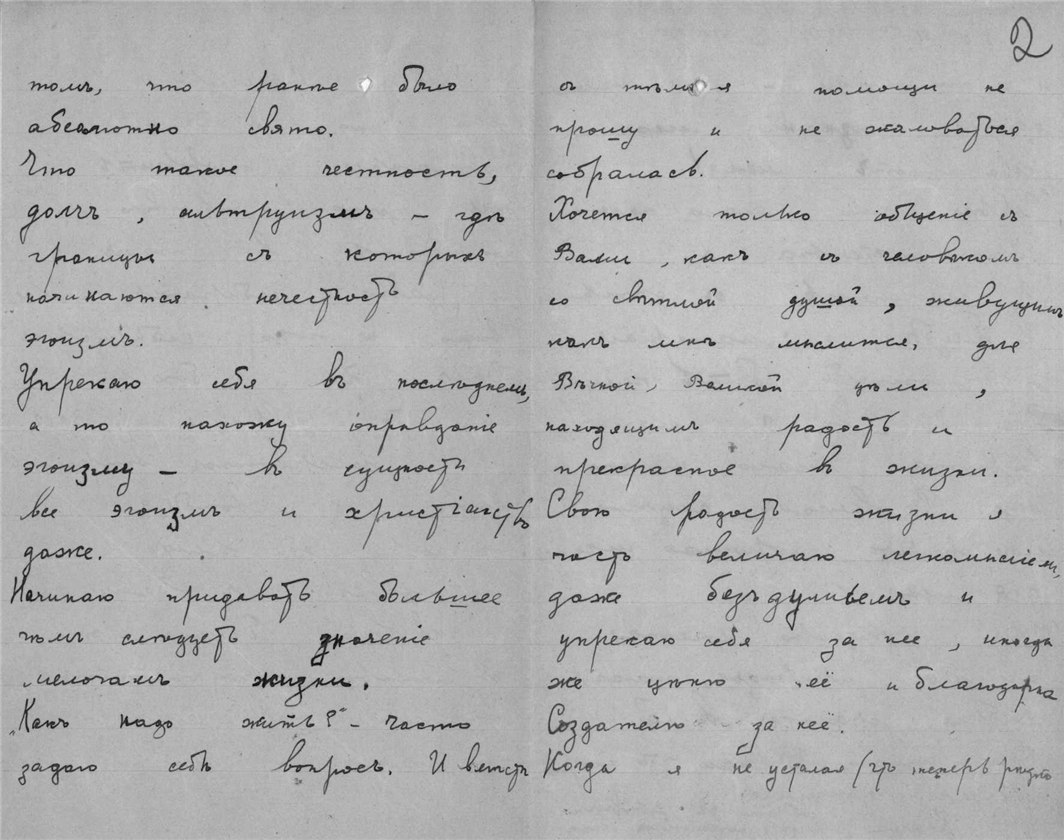 2
томъ, что ранѣе было
абсолютно свято.
Что такое честность,
долгъ, альтруизмъ – гдѣ
границы съ которыхъ
начинаются нечестность
эгоизмъ.
Упрекаю себя въ последнемъ,
а то нахожу оправданіе
эгоизму – въ сущности
все эгоизмъ и христіанство
даже.
Начинаю придавать большее
чѣмъ слѣдуетъ значеніе
мелочамъ жизни.
„Какъ надо жить?“ – часто
задаю себѣ вопросъ. И вместѣ
съ тѣмъ я помощи не
прошу и не жаловаться
собралась.
Хочется только общенія съ
Вами, какъ съ человѣкомъ
со свѣтлой душой, живущимъ
какъ мнѣ мыслится, для
Вѣчной, Великой цѣли,
находящимъ радость и
прекрасное въ жизни.
Свою радость жизни я
часто величаю легкомысліемъ,
даже бездушьемъ и
упрекаю себя за нее, иногда
же цѣню её и благодарна
Создателю за неё.
Когда я не усталая (что теперь